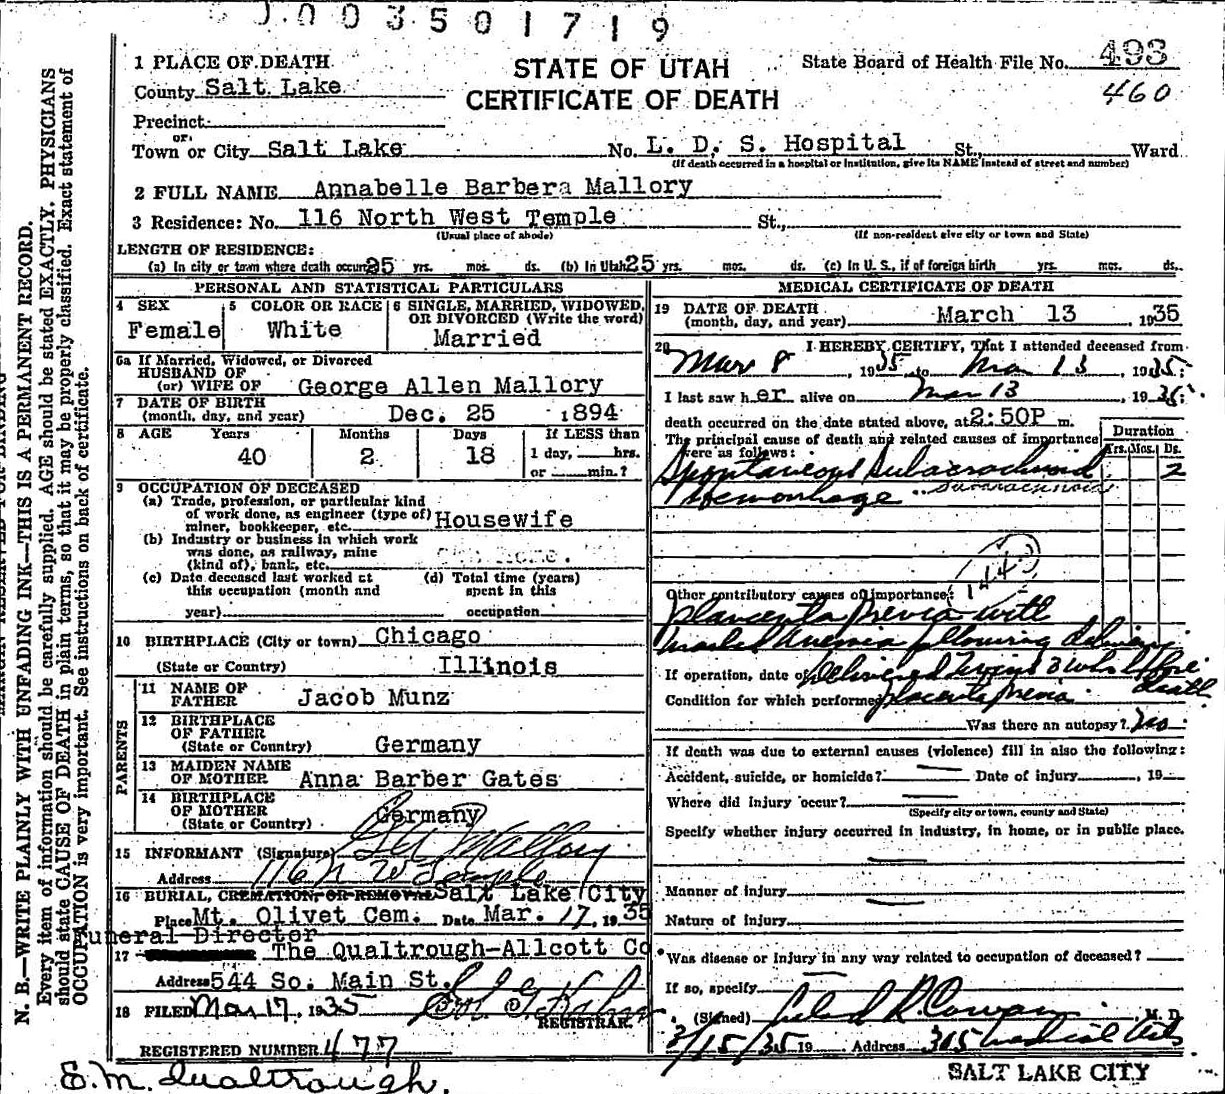 1003501719
1 PLACE OF DEATH
STATE OF UTAH
State Board of Health File No. 493
County Salt Lake
CERTIFICATE OF DEATH
460
Precinct
or
Town or City Salt Lake No. L. D. S. Hospital St., Ward
(If death occurred in a hospital or institution, give its NAME instead of street and number)
2 FULL NAME Annabelle Barbera Mallory
3 Residence: No. 116 North West Temple St.,
(Usual place of abode) (If non-resident give city or town and State)
LENGTH OF RESIDENCE:
(a) In city or town where death occurred 25 yrs. mos. ds. (b) In Utah 25 yrs. mos. ds. (c) In U. S., if of foreign birth yrs. mos. ds.
PERSONAL AND STATISTICAL PARTICULARS
4 SEX 5 COLOR OR RACE 6 SINGLE, MARRIED, WIDOWED, OR DIVORCED (Write the word)
Female White Married
6a If Married, Widowed, or Divorced
HUSBAND OF
(or) WIFE OF George Allen Mallory
7 DATE OF BIRTH
(month, day, and year) Dec. 25 1894
8 AGE Years Months Days If LESS than
40 2 18 1 day, hrs.
or min.?
9 OCCUPATION OF DECEASED
(a) Trade, profession, or particular kind
of work done, as engineer (type of)
miner, bookkeeper, etc. Housewife
(b) Industry or business in which work
was done, as railway, mine
(kind of), bank, etc.
(c) Date deceased last worked at
this occupation (month and
year)
(d) Total time (years)
spent in this
occupation
10 BIRTHPLACE (City or town) Chicago
(State or Country) Illinois
PARENTS
11 NAME OF
FATHER Jacob Munz
12 BIRTHPLACE
OF FATHER
(State or Country) Germany
13 MAIDEN NAME
OF MOTHER Anna Barber Gates
14 BIRTHPLACE
OF MOTHER
(State or Country) Germany
15 INFORMANT (Signature) Geo Mallory
Address 116 N W Temple
16 BURIAL, CREMATION, OR REMOVAL Salt Lake City
Place Mt. Olivet Cem. Date Mar. 17, 1935
Funeral Director
17 The Qualtrough-Allcott Co
Address 544 So. Main St.
18 FILED Mar 17, 1935
REGISTRAR.
REGISTERED NUMBER 477
E. M. Qualtrough.
MEDICAL CERTIFICATE OF DEATH
19 DATE OF DEATH
(month, day, and year) March 13 1935
20 I HEREBY CERTIFY, That I attended deceased from
Mar 8, 1935 to Mar 13 1935;
I last saw her alive on Mar 13, 1935;
death occurred on the date stated above, at 2:50P m.
The principal cause of death and related causes of importance
were as follows:
Duration
Yrs. Mos. Ds.
Spontaneous Subarachnoid 2
Hemorrhage subarachnoid
144
Other contributory causes of importance:
Placenta Previa with
marked Anemia following delivery
If operation, date of Delivered Twins 3 wks before
death
Condition for which performed placenta previa
Was there an autopsy? no
If death was due to external causes (violence) fill in also the following:
Accident, suicide, or homicide? Date of injury , 19
Where did injury occur?
(Specify city or town, county and State)
Specify whether injury occurred in industry, in home, or in public place.
Manner of injury
Nature of injury
Was disease or injury in any way related to occupation of deceased?
If so, specify
(Signed) Leland R. Cowan M. D.
3/15/35 19 Address 305 Medical Arts
SALT LAKE CITY
N. B.—WRITE PLAINLY WITH UNFADING INK—THIS IS A PERMANENT RECORD.
Every item of information should be carefully supplied. AGE should be stated EXACTLY. PHYSICIANS
should state CAUSE OF DEATH in plain terms, so that it may be properly classified. Exact statement of
OCCUPATION is very important. See instructions on back of certificate.